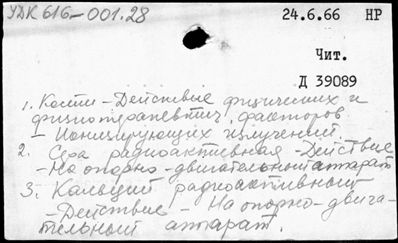 УДК 616-001.28 24.6.66 НР
Чит.
Д 39089
1. Кости - Действие физических и
физиотерапевтич. факторов
- Ионизирующих излучений
2. Сера радиоактивная - Действие
- На опорно-двигательный аппарат
3. Кальций радиоактивный
- Действие - На опорно-двига-
тельный аппарат.